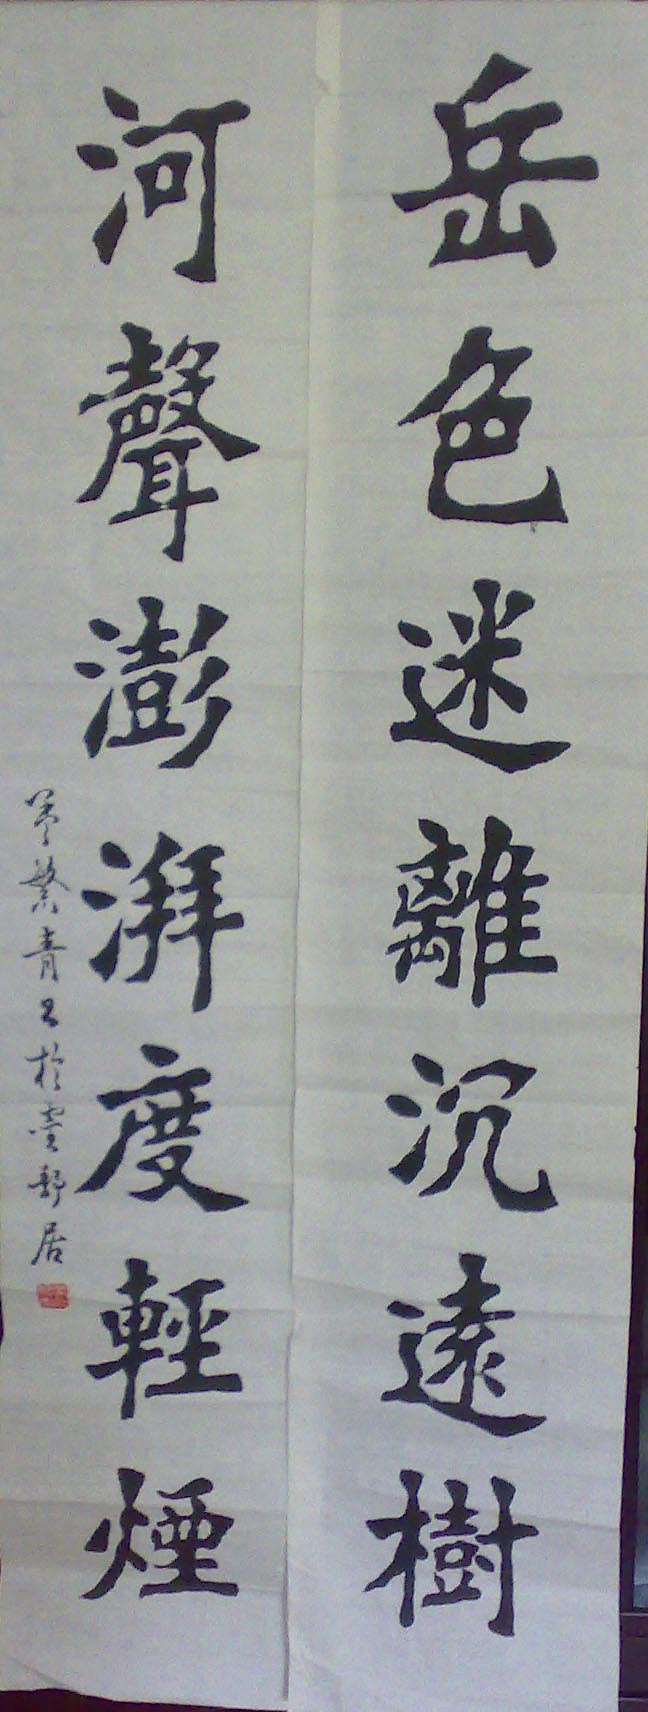 岳色迷離沉遠樹
河聲澎湃度輕煙
繁青書於雲舒居